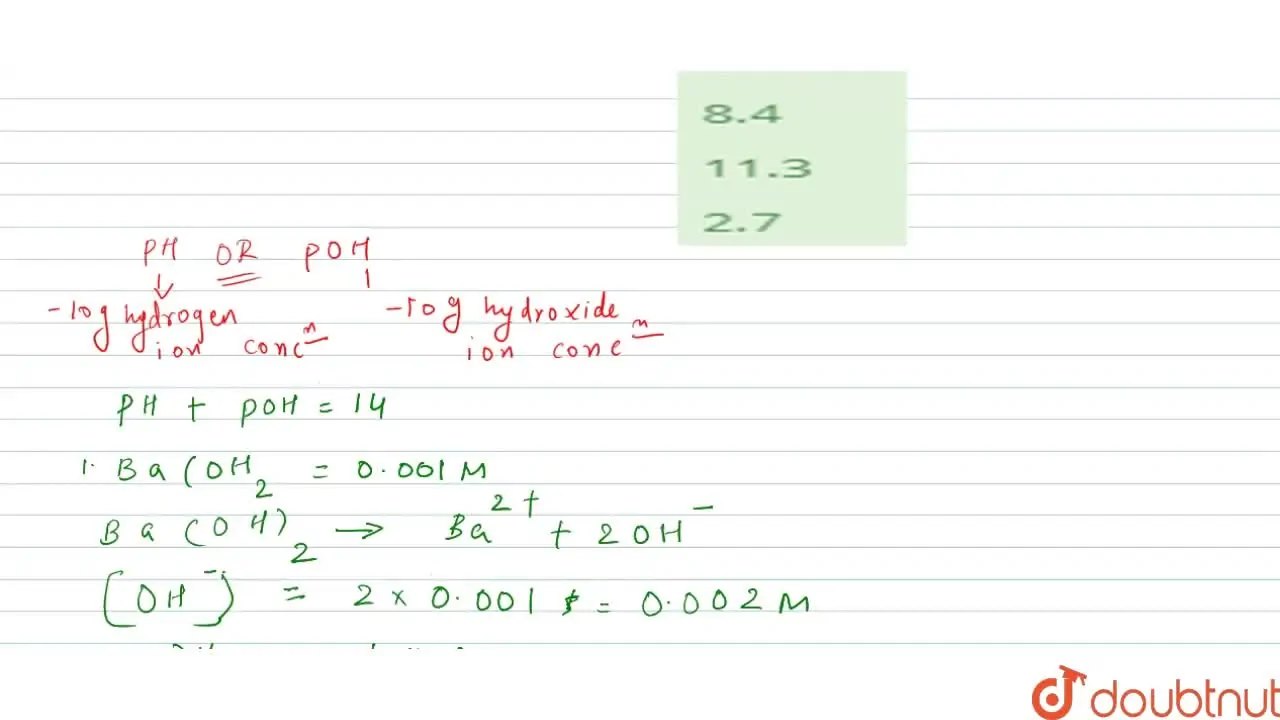 8.4
11.3
2.7
PH OR POH
-log hydrogen ion concn
-log hydroxide ion concn
PH + POH = 14
1. Ba(OH2 = 0.001 M
Ba(OH)2 → Ba2+ + 2OH-
[OH-] = 2 x 0.001 = 0.002 M
doubtnut